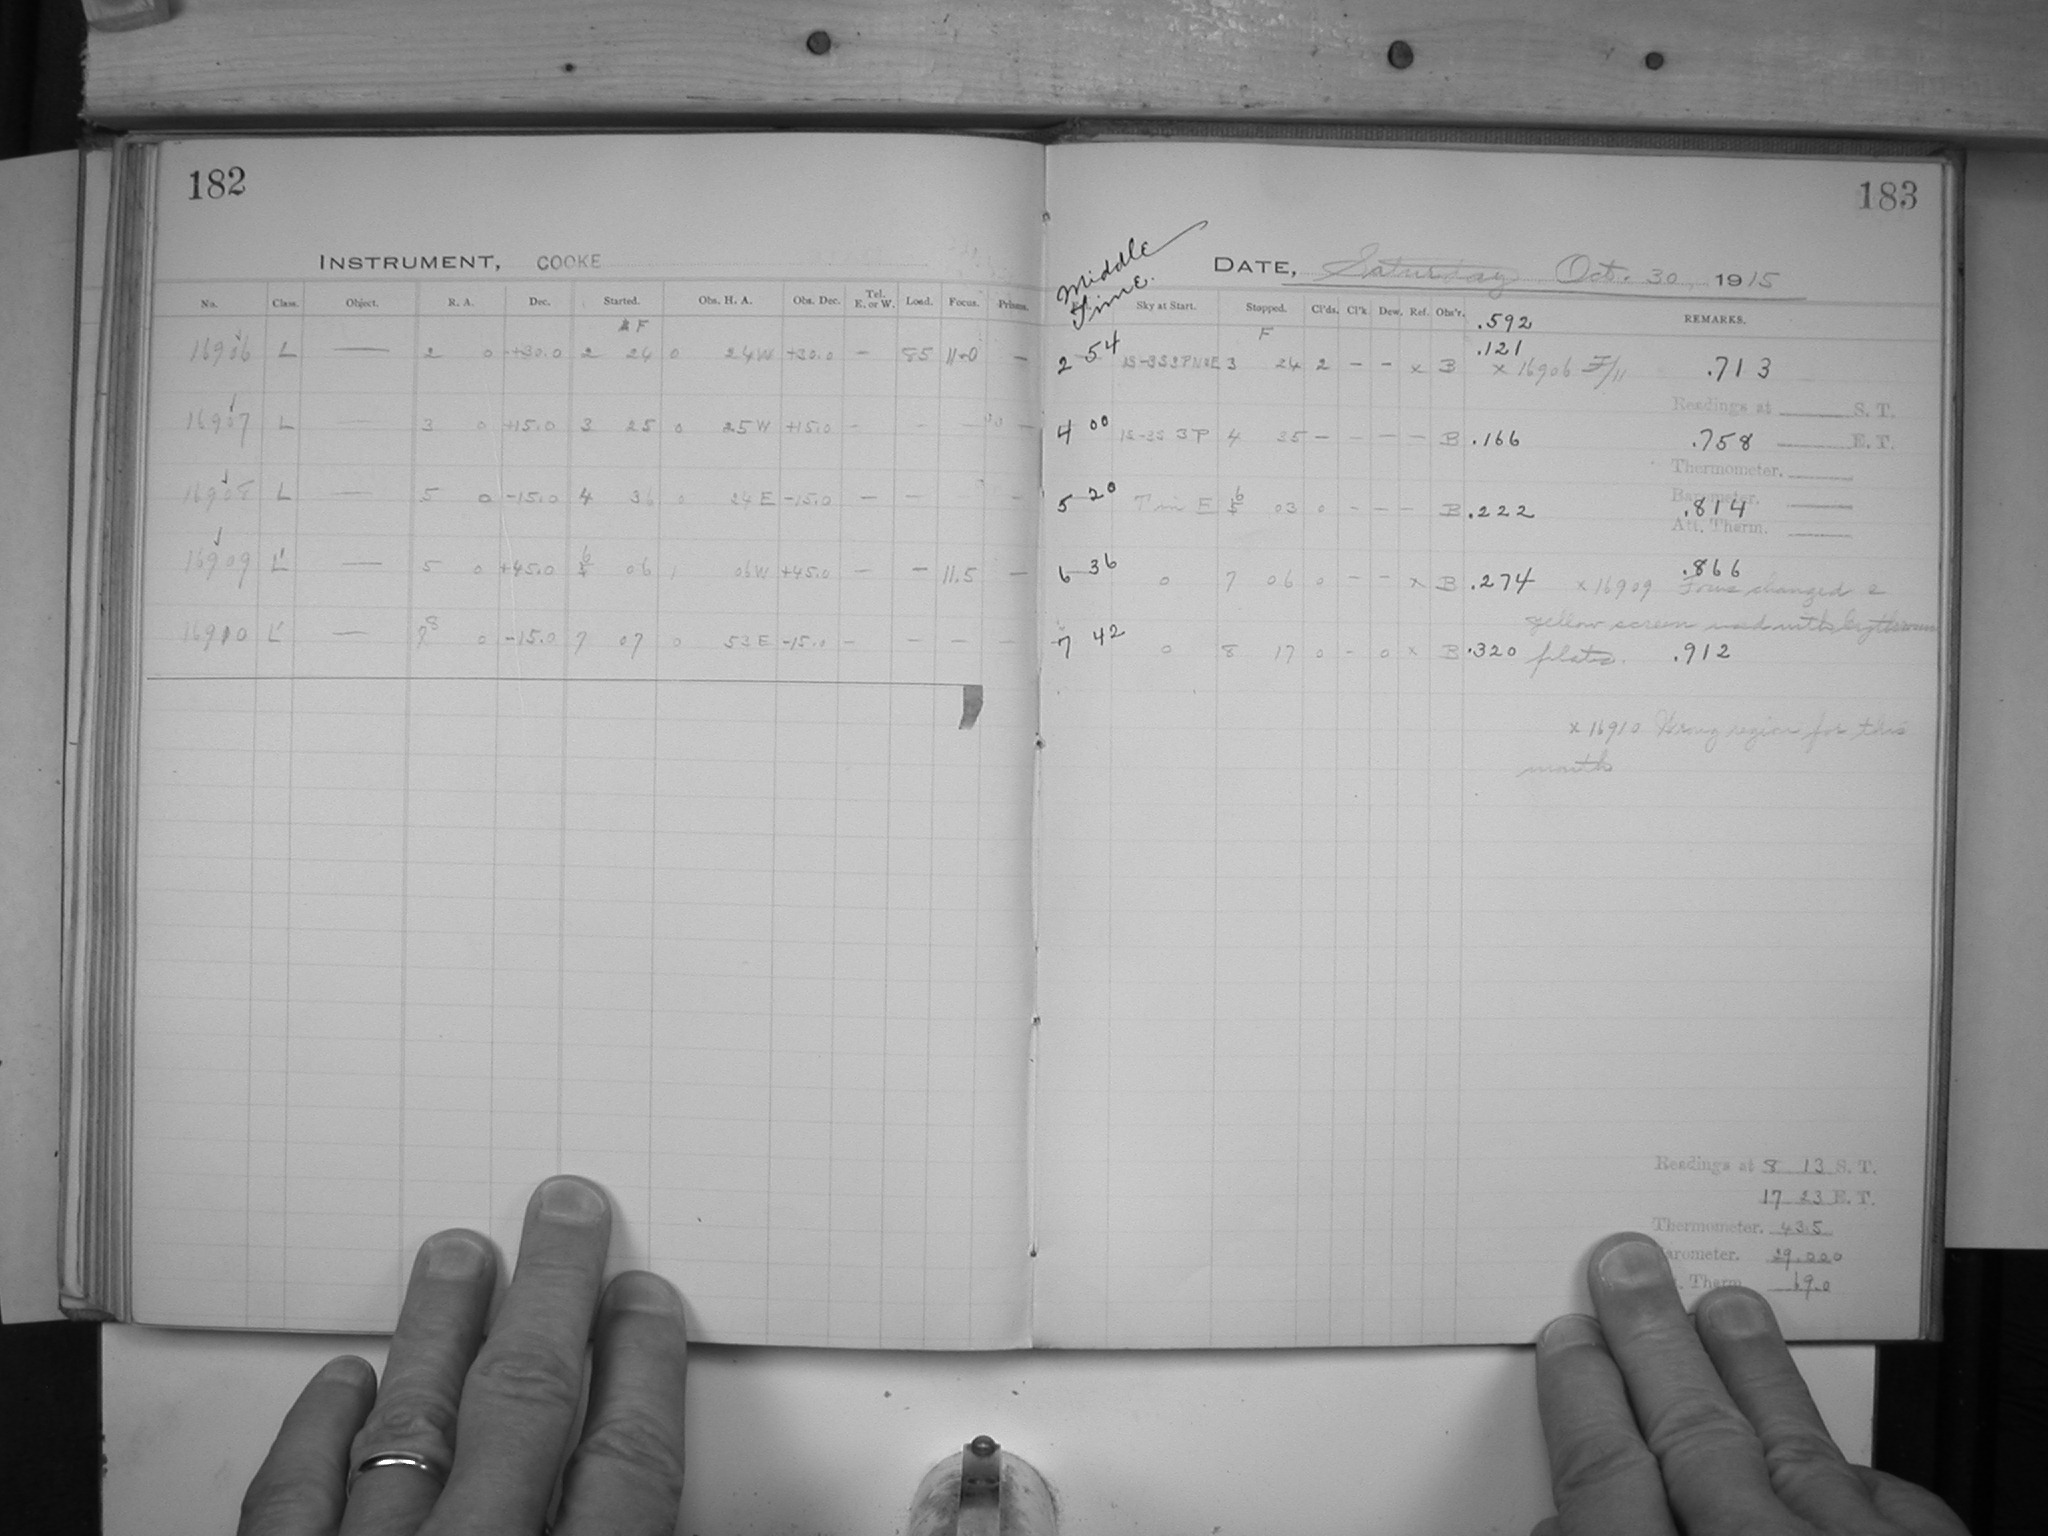 182
183
INSTRUMENT, COOKE
DATE, Saturday Oct. 30, 1915
Middle Time.
No. Class. Object. R. A. Dec. Started. Obs. H. A. Obs. Dec. Tel. E. or W. Load. Focus. Prisms.
Sky at Start. Stopped. Cl'ds. Cl'k Dew. Ref. Obs'r. REMARKS.
.592
F
F
.121
16906 L — 2 0 +30.0 2 24 0 24W +30.0 — 85 —
2 54 3 24 2 — — x B x 16906 F/11 .713
Readings at S. T.
16907 L — 3 0 +15.0 3 25 0 25W +15.0 — — — —
4 00 1S-3S 3P 4 35 — — — — B .166 .758 E. T.
Thermometer.
16908 L — 5 0 -15.0 4 36 0 24E -15.0 — — —
Barometer.
5 20 E 6 03 0 — — — B .222 .814
Att. Therm.
16909 L' — 5 0 +45.0 6 06 1 06W +45.0 — — 11.5 —
.866
6 36 0 7 06 0 — — x B .274 x 16909 Focus changed &
yellow screen used with
16910 L' — 8 0 -15.0 7 07 0 53E -15.0 — — — — —
7 42 0 8 17 0 - 0 x B .320 plates. .912
x 16910 Wrong region for this
month
Readings at 8 13 S. T.
17 23 E. T.
Thermometer. 43.5
Barometer. 29.000
Therm 69.0